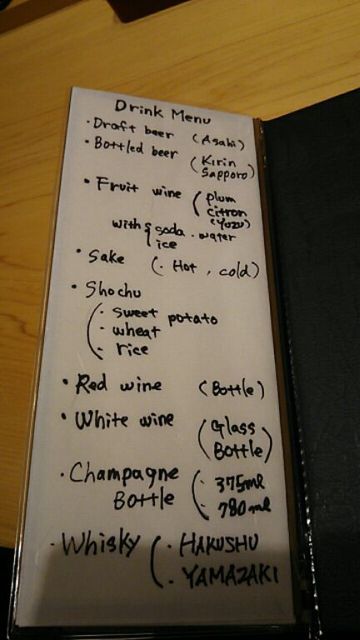 Drink Menu
・Draft beer (Asahi)
・Bottled beer (Kirin
Sapporo)
・Fruit wine (plum
citron
(Yuzu)
with { soda・water
ice
・Sake (・Hot, cold)
・Shochu
・sweet potato
・wheat
・rice
・Red wine (Bottle)
・White wine (Glass
Bottle)
・Champagne (・375ml
Bottle ・780ml
・Whisky (・HAKUSHU
・YAMAZAKI